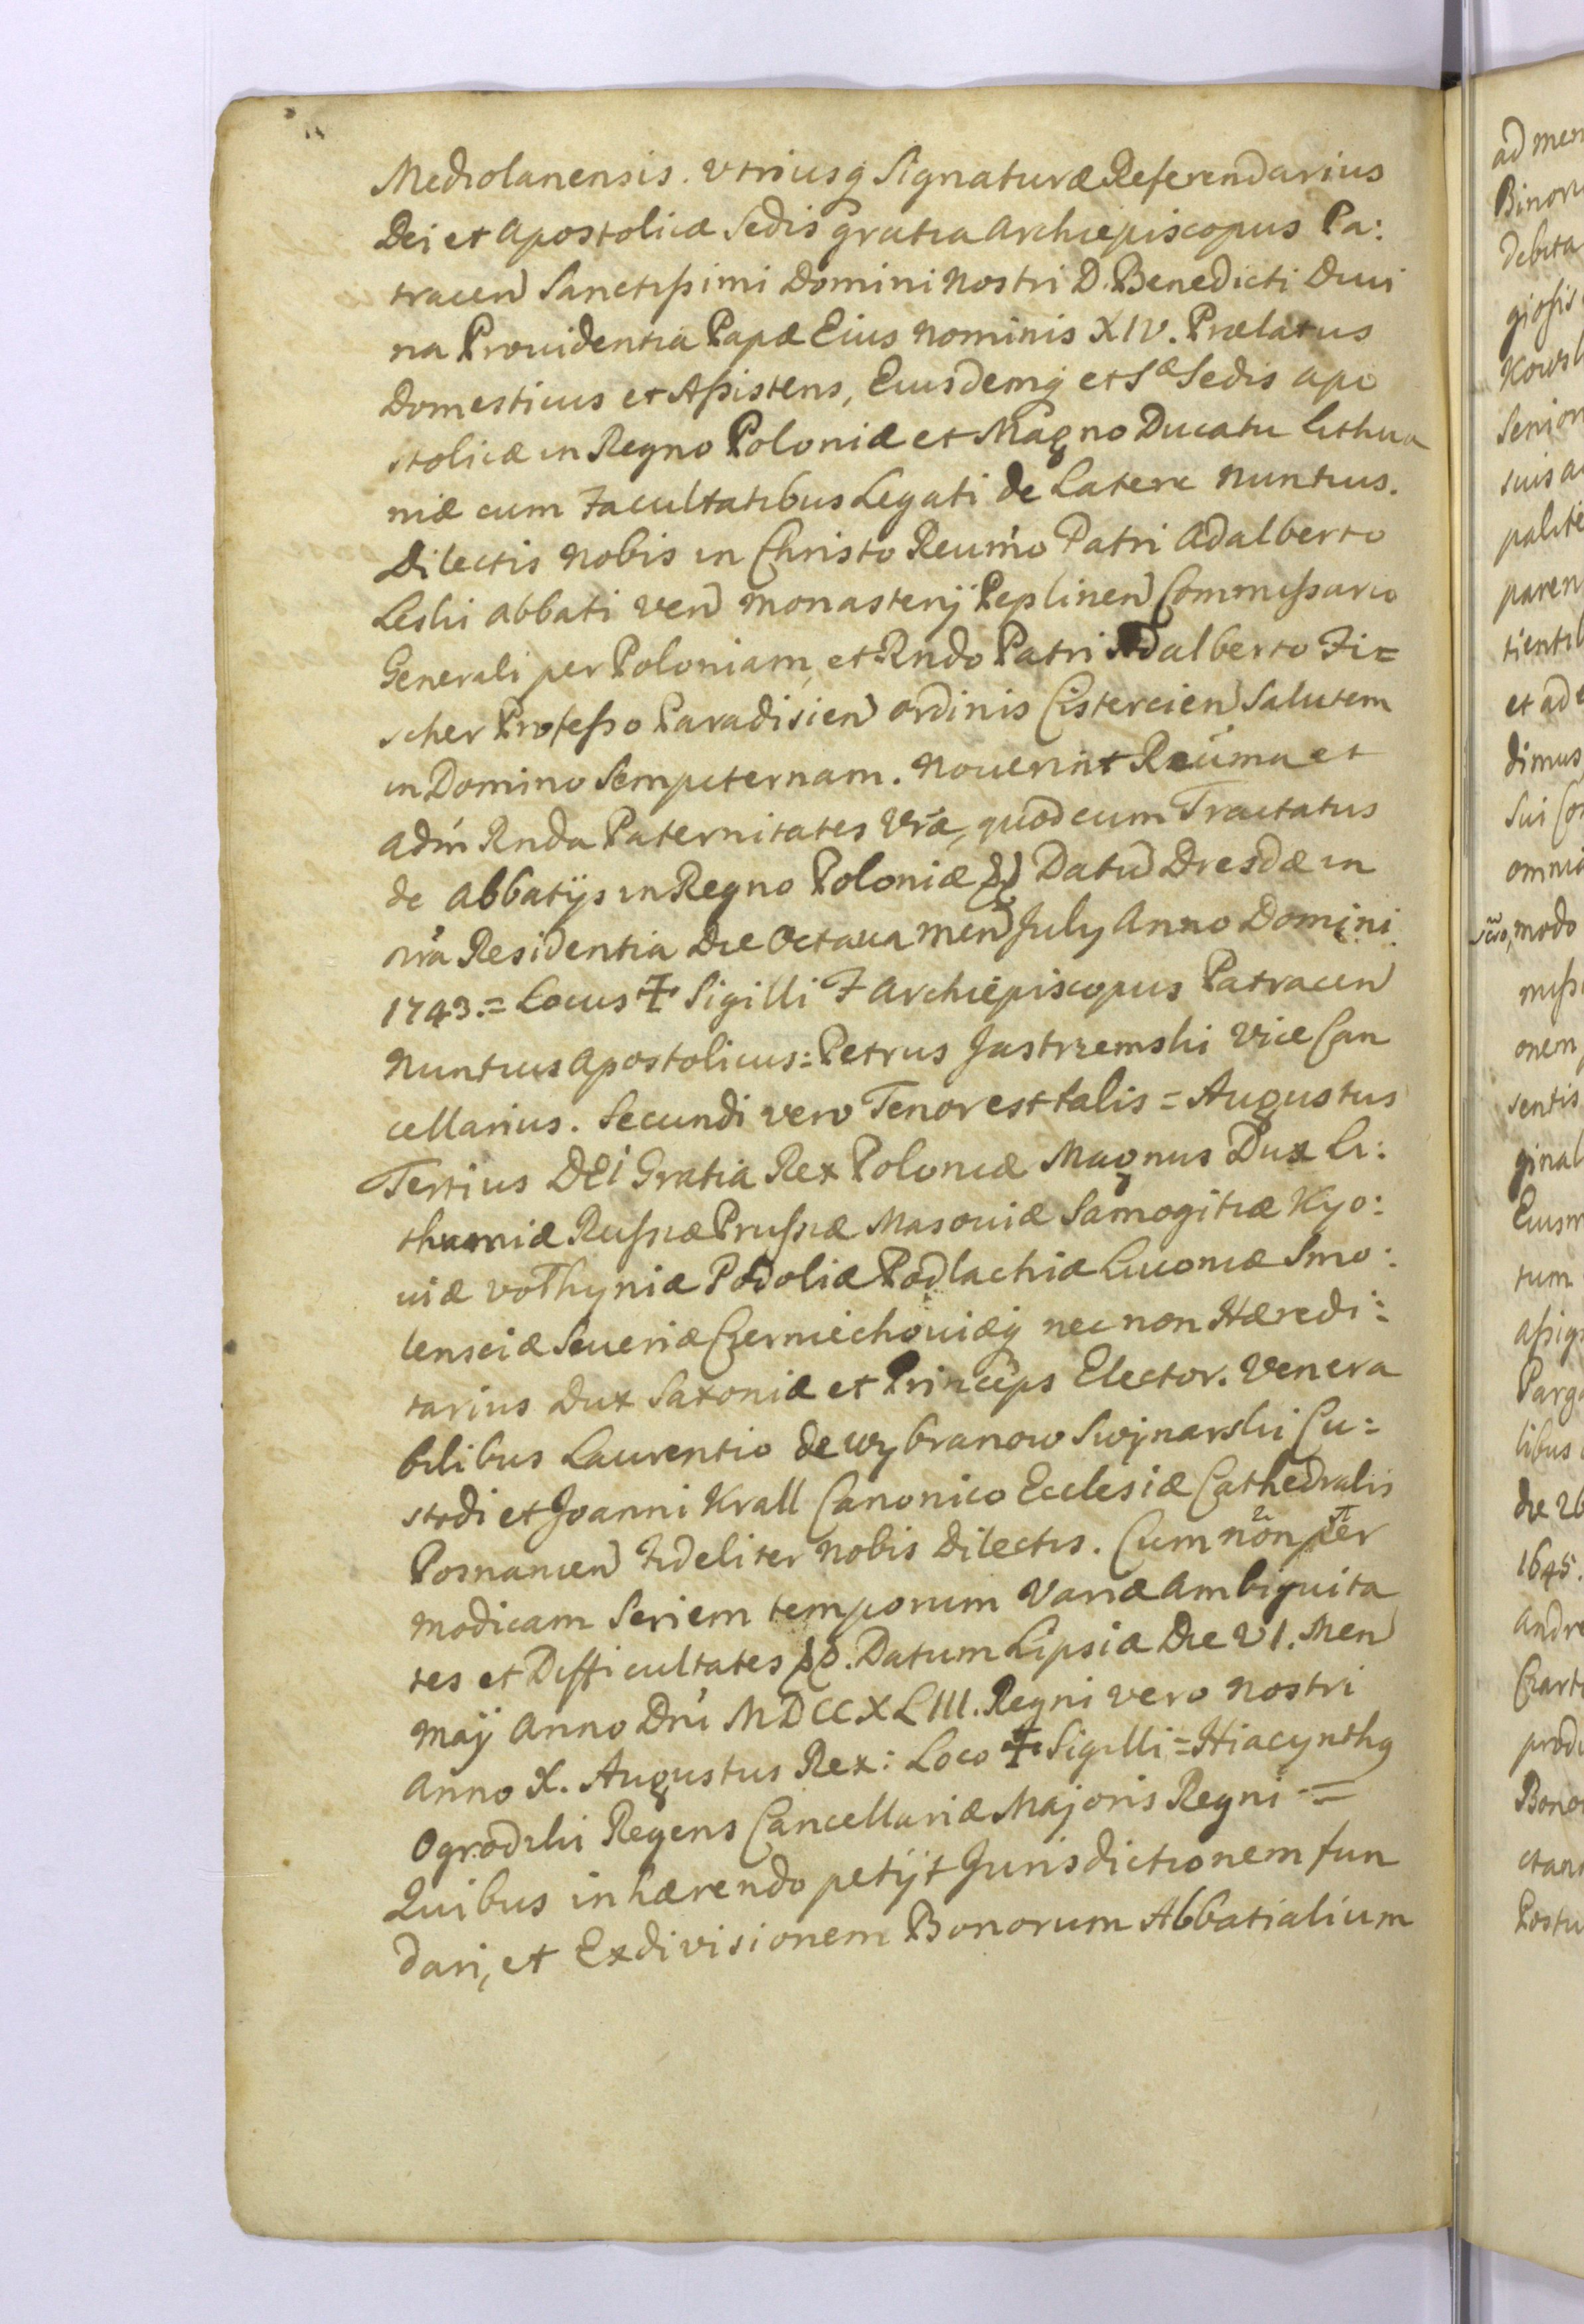 Mediolanensis. Vtriusq Signaturæ Referendarius
Dei et Apostolicæ Sedis gratia Archiepiscopus Pa:
tracen Sanctißimi Domini Nostri D. Benedicti Diui
na Prouidentia Papæ Eius Nominis XIV. Prælatus
Domesticus et Aßistens, Eiusdemq et Sæ Sedis Apo
stolicæ in Regno Poloniæ et Magno Ducatu Lithua
niæ cum Facultatibus Legati de Latere Nuntius.
Dilectis Nobis in Christo Reu͠mo Patri Adalberto
Leski Abbati Ven Monasterij Peplinen Commißario
Generali per Poloniam, et Rndo Patri Adalberto Fi=
scher Profeßo Paradisien Ordinis Cistercien Salutem
in Domino Sempiternam. Nouerint Reu͠ma et
Adm̃ Rnda Paternitates Vr̃æ, quod cum Tractatus
de Abbatijs in Regno Poloniæ &c Datũ Dresdæ in
nr̃a Residentia Die Octaua Men July Anno Domini
1743.= Locus ✝ Sigilli F Archiepiscopus Patracen
Nuntius Apostolicus: Petrus Jastrzemski Vice Can
cellarius. Secundi vero Tenor est talis = Augustus
Tertius DEi Gratia Rex Poloniæ Magnus Dux Li:
thuaniæ Rußiæ Prußiæ Masouiæ Samogitiæ Kyo:
uiæ Volhyniæ Podoliæ Podlachiæ Liuoniæ Smo:
lensciæ Seueriæ Czerniechouiæq nec non Hæredi:
tarius Dux Saxoniæ et Princeps Elector. Venera
bilibus Laurentio de Wybranow Swinarski Cu=
stodi et Joanni Krall Canonico Ecclesiæ Cathedralis
Posnanien Fideliter Nobis Dilectis. Cum non per
modicam Seriem temporum Variæ Ambiguita
tes et Difficultates &c. Datum Lipsiæ Die VI. Men
Maij Anno Dnĩ MDCCXLIII. Regni vero Nostri
Anno X. Augustus Rex: Loco ✝ Sigilli = Hiacynthq
Ogrodzki Regens Cancellariæ Majoris Regni =
Quibus inhærendo petijt Jurisdictionem fun
dari, et Exdivisionem Bonorum Abbatialium
ad men
Binoru
Debita
gioßis
Kowsk
Senior
suis a
palite
paren
tientib
et ad e
dimus
Sui Co
omni
modo
mißi
onem
sentis
ginal
Eiusm
tum
aßig
Parg
libus
die 26
1645.
Andre
Czart
produ
Bono
etan
Postu